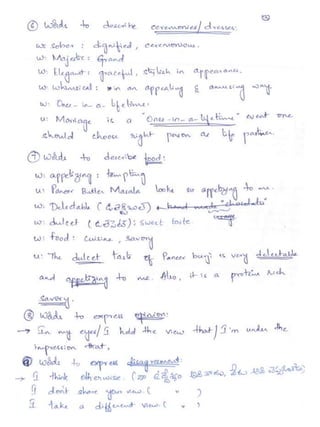 ⑥ Words to describe ceremonies/dresses:
w: sober : dignified, ceremonious.
w: Majestic : Grand
w: Elegant : graceful, stylish in appearance.
w: Whimsical : in an appealing & amusing way.
w: Once-in-a-lifetime.
u: Marriage is a "Once-in-a-lifetime" event one
should choose right person as life partner.
⑦ Words to describe food:
w: appetizing : tempting
u: Paneer Butter Masala looks so appetizing to me.
w: Delectable
w: dulcet : Sweet taste.
w: food : Cuisine, Savory
u: The dulcet taste of Paneer burji is very delectable
and appetizing to me. Also, it is a protein rich
savory.
⑧ Words to express opinion:
→ In my eyes/I hold the view that/I'm under the
impression that,
⑨ Words to express disagreement:
→ I think otherwise.
I don't share your view. ( " )
I take a different view. ( " )